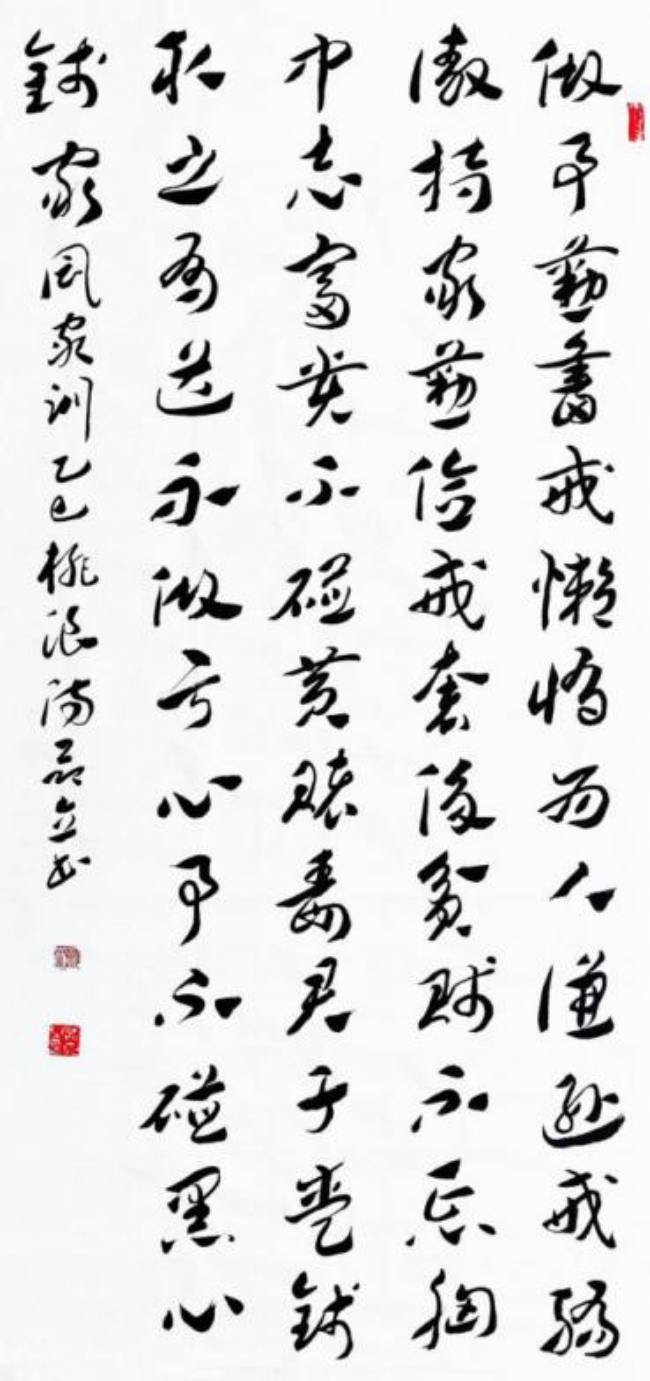 做事勤奮戒懶惰为人谦遜戒驕
傲持家勤儉戒奢侈貧賤不忘胸
中志富貴不碰黄賭毒君子愛錢
取之有道不做亏心事不碰黑心
錢 家風家訓 乙巳桃浪湯